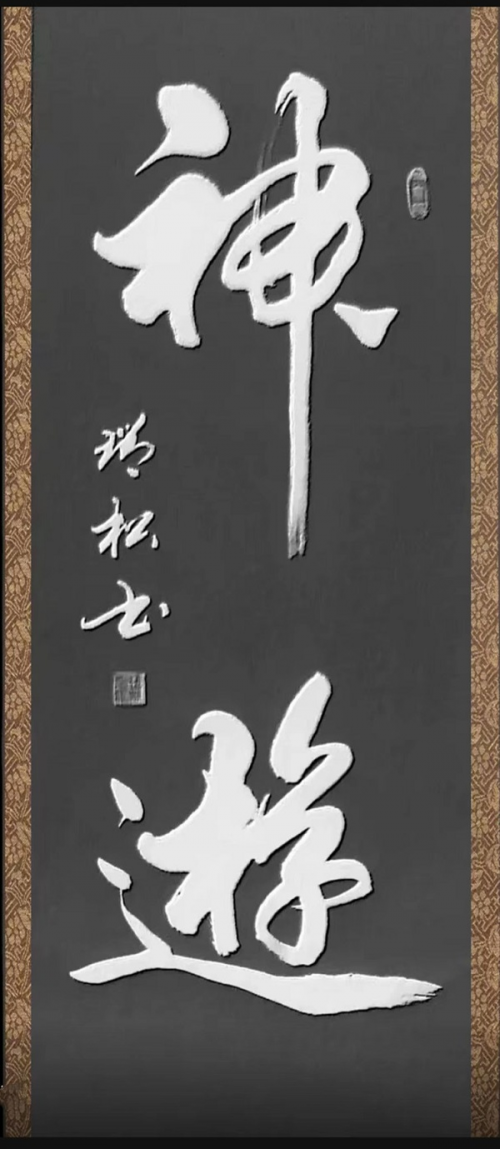 神遊
瑞松书